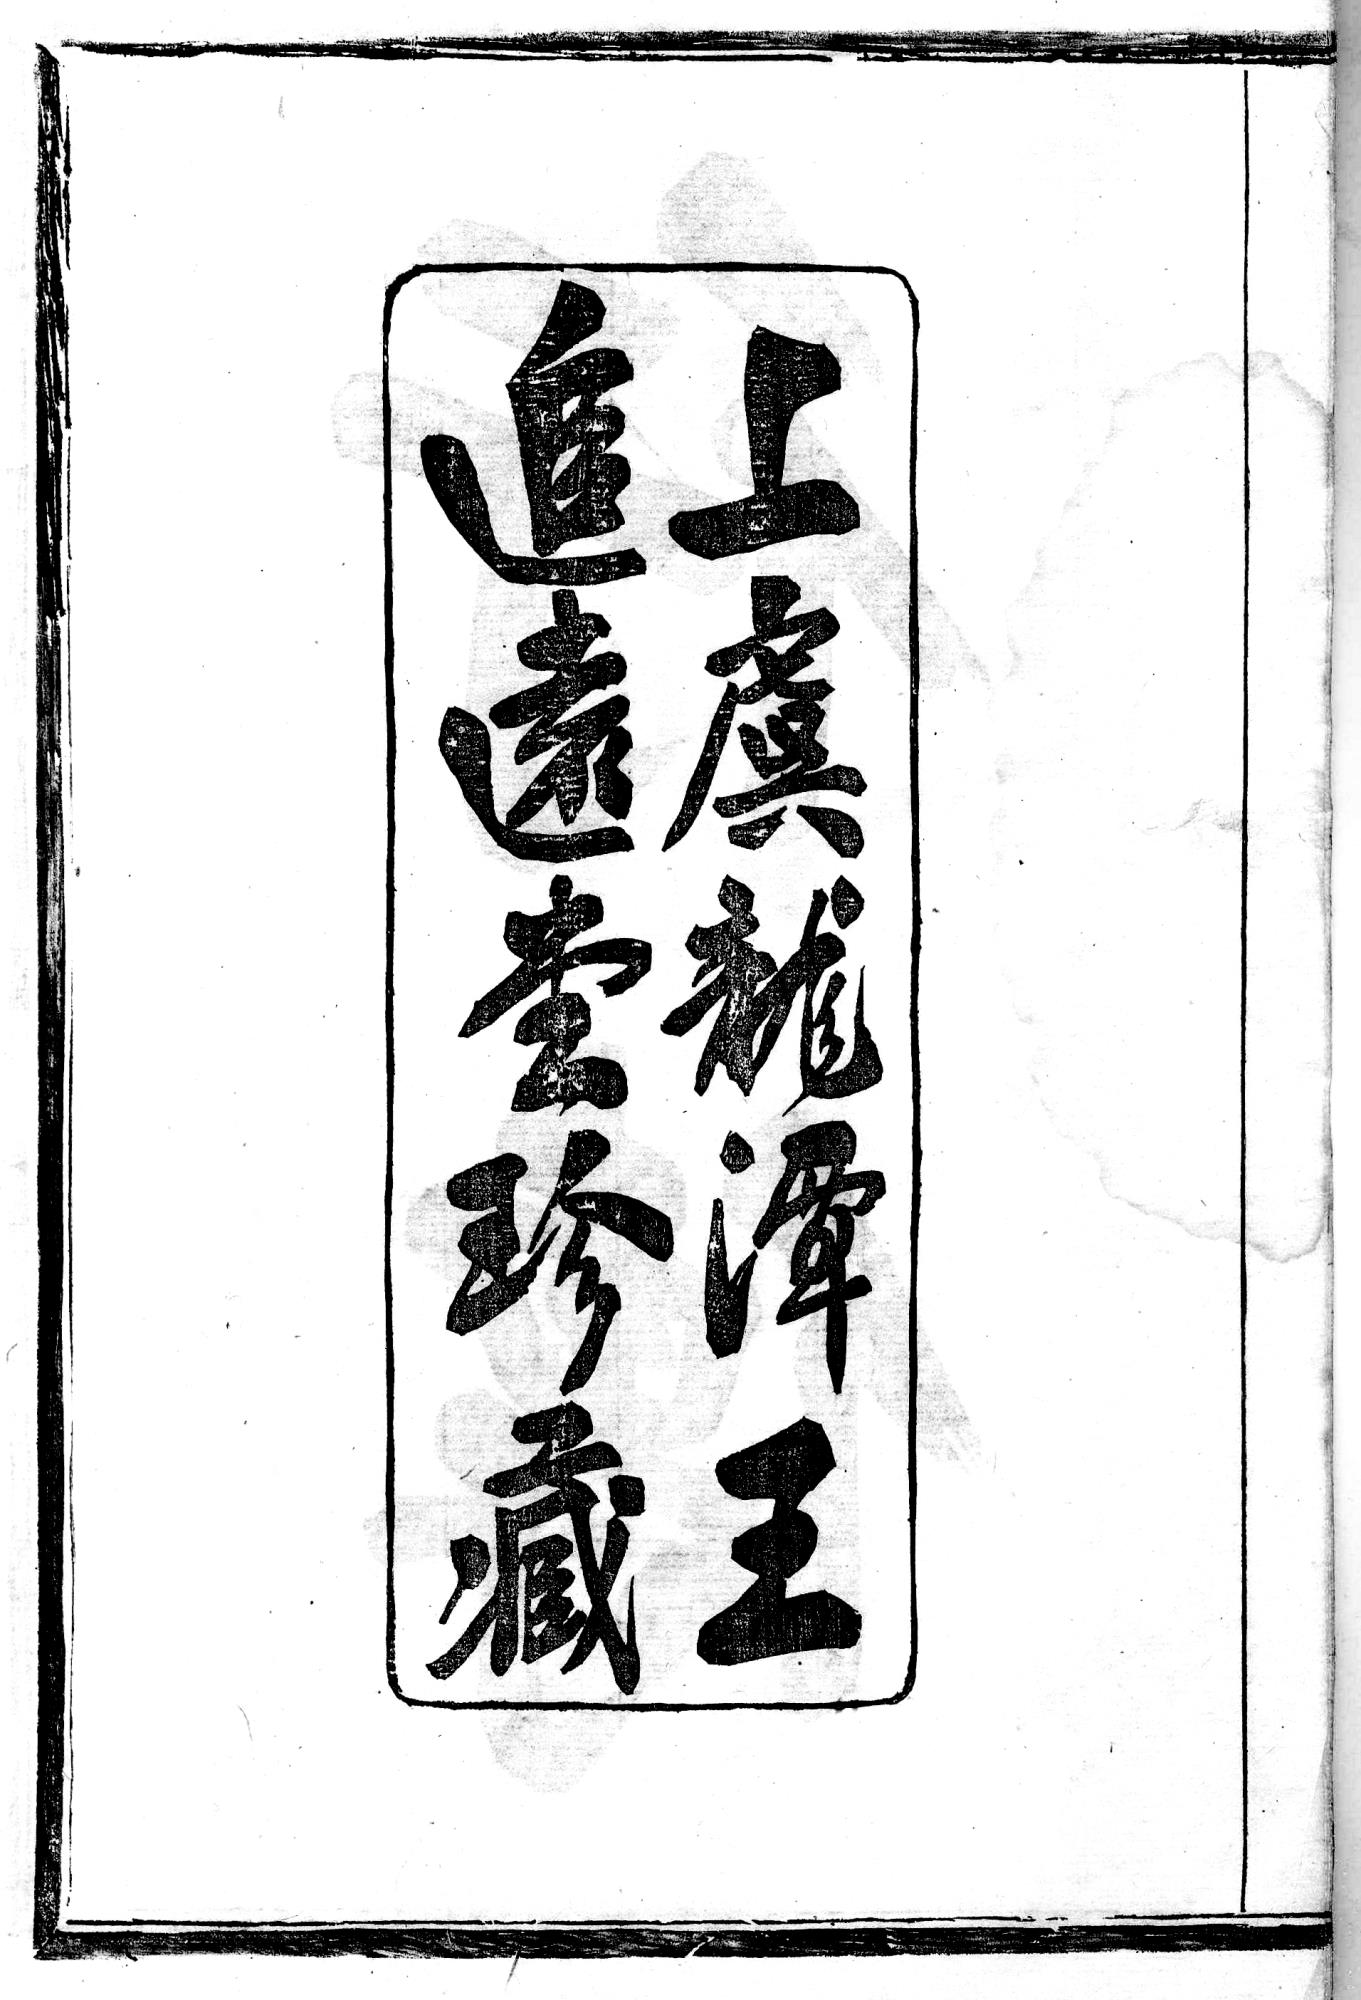 上虞龍潭王
追遠堂珍藏